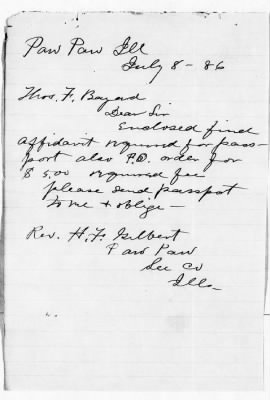 Paw Paw Ill
July 8 - 86
Thos. F. Bayard
Dear Sir
Enclosed find
affidavit required for pass-
port also P.O. order for
$5.00 required fee
please send passpot
to me & oblige -
Rev. H. F. Gilbert
Paw Paw
Lee Co
Ills -